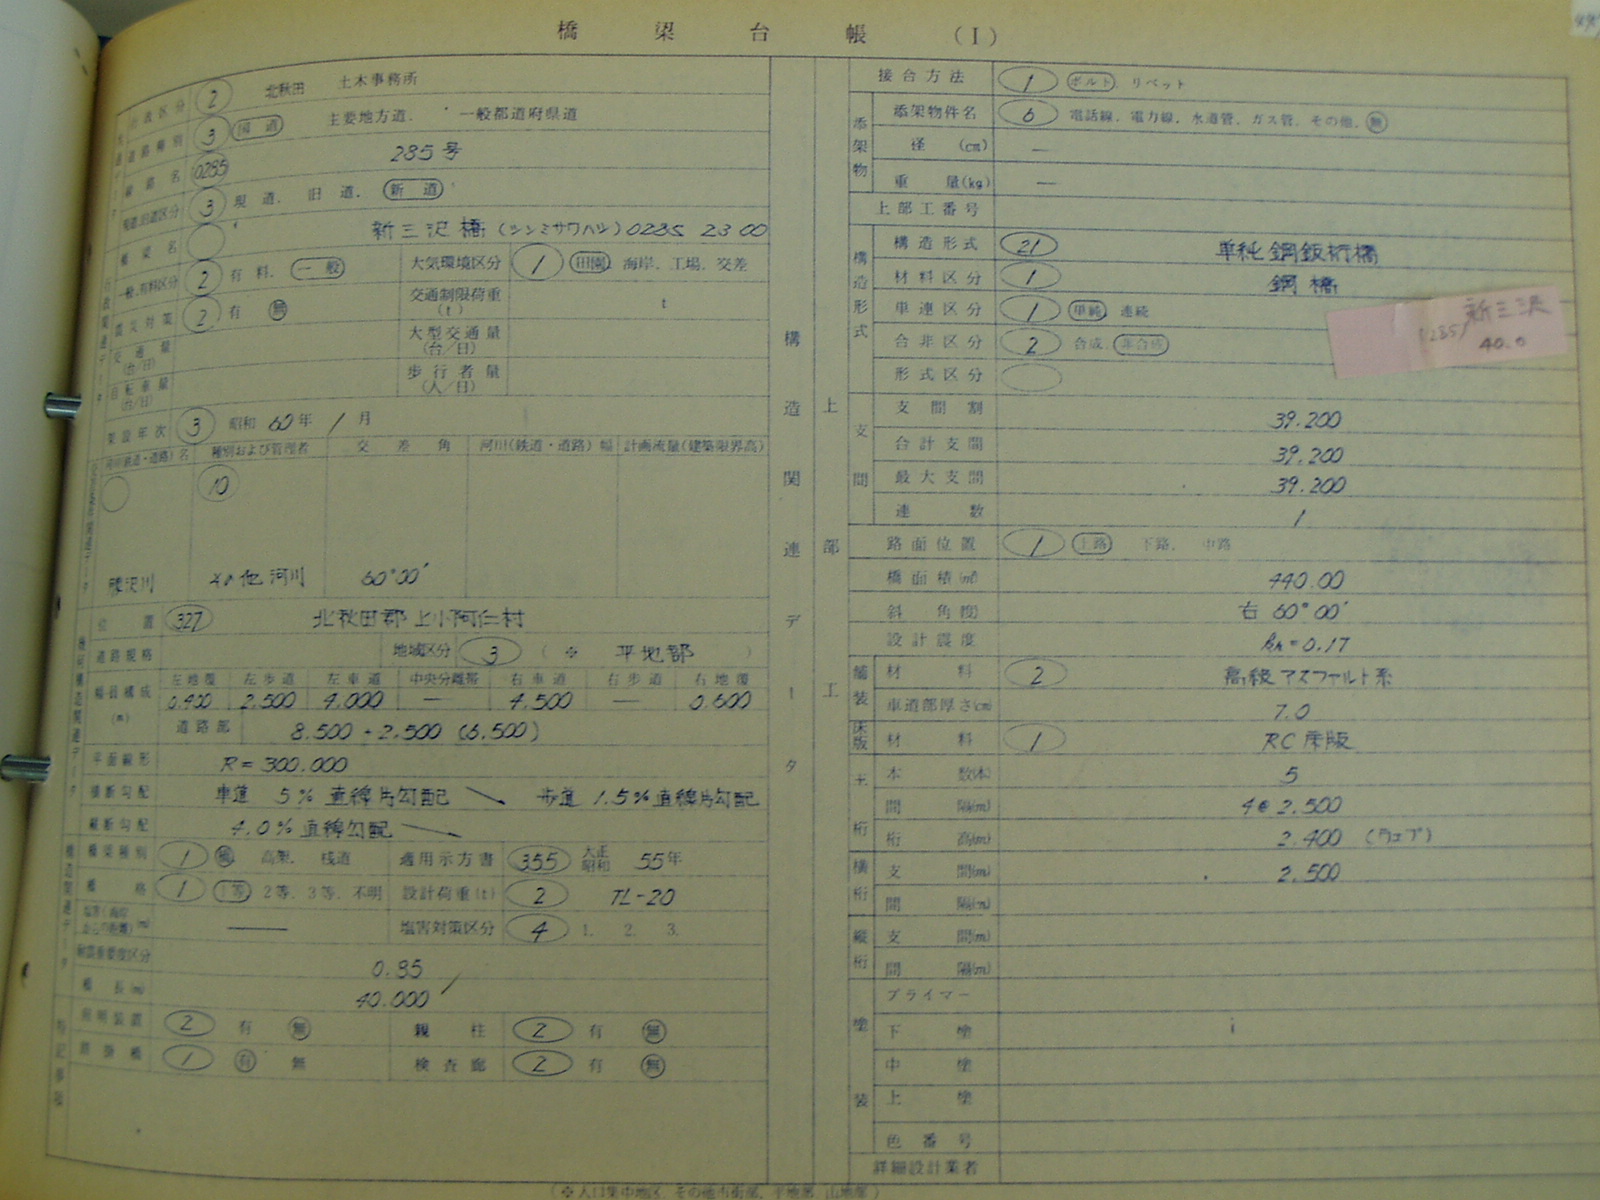 橋梁台帳(I)
行政区分 2 北秋田 土木事務所
道路種別 3 国道 主要地方道. 一般都道府県道
路線名 0285 285号
現道.旧道区分 3 現道. 旧道. 新道
橋梁名 新三沢橋(シンミサワハシ)0285 23 00
一般.有料区分 2 有料. 一般 大気環境区分 1 田園. 海岸. 工場. 交差
震災対策 2 有 無 交通制限荷重(t) t
交通量(台/日) 大型交通量(台/日)
自転車量(台/日) 歩行者量(人/日)
架設年次 3 昭和 60年 1月
河川(鉄道・道路)名 種別および管理者 交差角 河川(鉄道・道路)幅 計画流量(建築限界高)
10
沢川 その他河川 60°00′
位置 327 北秋田郡上小阿仁村
道路規格 地域区分 3 (※ 平地部)
幅員構成(m) 左地覆 左歩道 左車道 中央分離帯 右車道 右歩道 右地覆
0.400 2.500 4.000 — 4.500 — 0.600
道路部 8.500 + 2.500 (6.500)
平面線形 R=300.000
横断勾配 車道 5% 直線片勾配 歩道 1.5%直線片勾配
縦断勾配 4.0%直線勾配
橋梁種別 1 橋 高架. 桟道 適用示方書 355 大正 昭和 55年
橋格 1 1等 2等. 3等. 不明 設計荷重(t) 2 TL-20
塩害(海岸からの距離)(m) — 塩害対策区分 4 1. 2. 3.
耐震重要度区分 0.85
橋長(m) 40.000
照明装置 2 有 無 親柱 2 有 無
1 有 無 検査廊 2 有 無
特記事項
構造関連データ
上部工
接合方法 1 ボルト. リベット
添架物 添架物件名 6 電話線. 電力線. 水道管. ガス管. その他. 無
径(cm) —
重量(kg) —
上部工番号
構造形式 構造形式 21 単純鋼鈑桁橋
材料区分 1 鋼橋
単連区分 1 単純 連続
合非区分 2 合成. 非合成
形式区分
新三沢
(285) 40.0
支間 支間割 39.200
合計支間 39.200
最大支間 39.200
連数 1
路面位置 1 上路 下路. 中路
橋面積(㎡) 440.00
斜角(度) 右 60°00′
設計震度 kh=0.17
舗装 材料 2 高級アスファルト系
車道部厚さ(cm) 7.0
床版 材料 1 RC床版
主桁 本数(本) 5
間隔(m) 4@2.500
桁高(m) 2.400 (ウェブ)
横桁 支間(m) 2.500
間隔(m)
縦桁 支間(m)
間隔(m)
塗装 プライマー
下塗
中塗
上塗
色番号
詳細設計業者
(※人口集中地区. その他市街部. 平地部. 山地部)